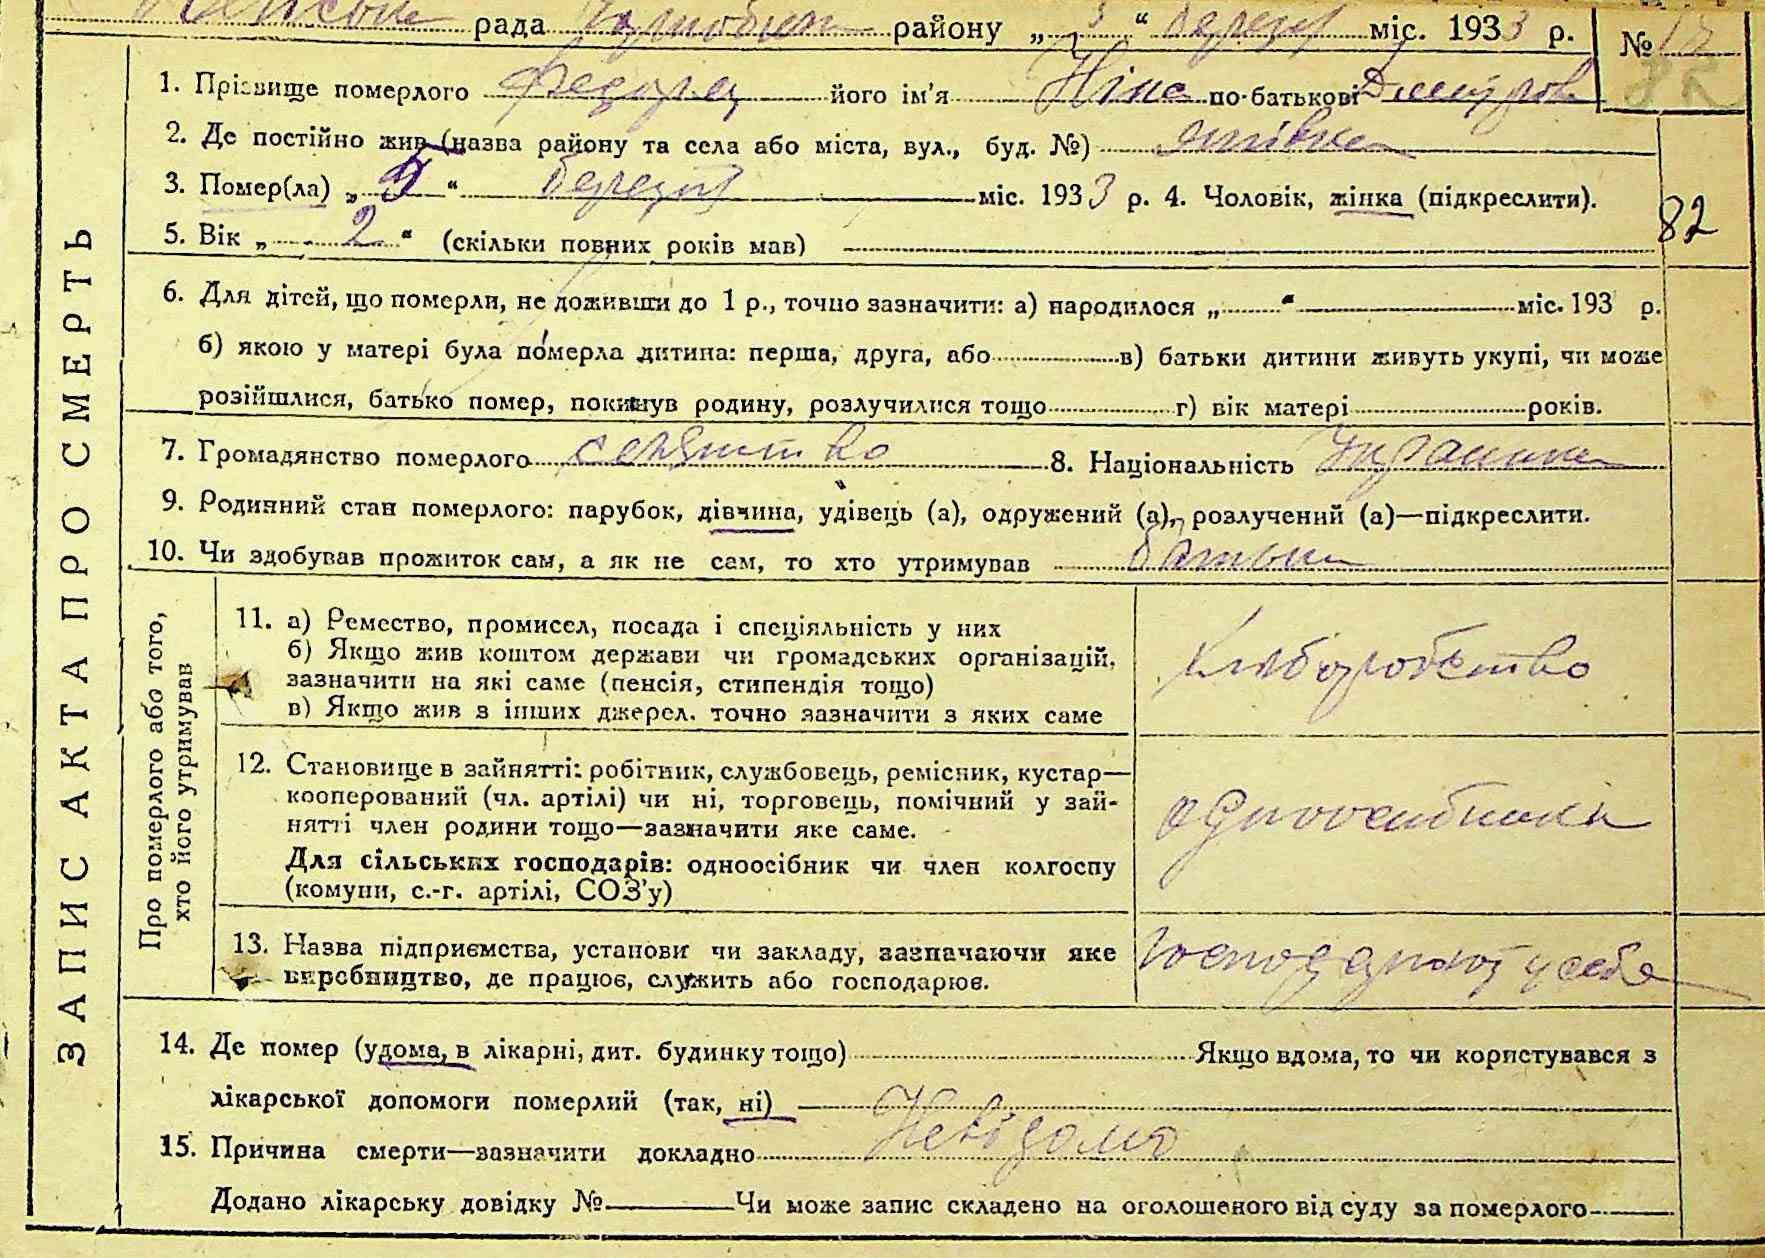 рада району „ 3 “ березня міс. 1933 р. №
1. Прізвище померлого Федорец його ім'я Ніна по-батькові Дмитров
2. Де постійно жив (назва району та села або міста, вул., буд. №)
3. Помер(ла) „ 5 “ березня міс. 1933 р. 4. Чоловік, жінка (підкреслити).
82
5. Вік „ 2 “ (скільки повних років мав)
6. Для дітей, що померли, не доживши до 1 р., точно зазначити: а) народилося „ “ міс. 193 р.
б) якою у матері була померла дитина: перша, друга, або в) батьки дитини живуть укупі, чи може
розійшлися, батько помер, покинув родину, розлучилися тощо г) вік матері років.
7. Громадянство померлого селянство 8. Національність Українка
9. Родинний стан померлого: парубок, дівчина, удівець (а), одружений (а), розлучений (а)—підкреслити.
10. Чи здобував прожиток сам, а як не сам, то хто утримував батьки
ЗАПИС АКТА ПРО СМЕРТЬ
Про померлого або того,
хто його утримував
11. а) Ремество, промисел, посада і спеціяльність у них
б) Якщо жив коштом держави чи громадських організацій,
зазначити на які саме (пенсія, стипендія тощо)
в) Якщо жив з інших джерел. точно зазначити з яких саме
хліборобство
12. Становище в зайнятті: робітник, службовець, ремісник, кустар—
кооперований (чл. артілі) чи ні, торговець, помічний у зай-
нятті член родини тощо—зазначити яке саме.
Для сільських господарів: одноосібник чи член колгоспу
(комуни, с.-г. артілі, СОЗ'у)
одноосібники
13. Назва підприємства, установи чи закладу, зазначаючи яке
виробництво, де працює, служить або господарює.
господарюют у себе
14. Де помер (удома, в лікарні, дит. будинку тощо) Якщо вдома, то чи користувався з
лікарської допомоги померлий (так, ні)
15. Причина смерти—зазначити докладно Невідомо
Додано лікарську довідку № Чи може запис складено на оголошеного від суду за померлого